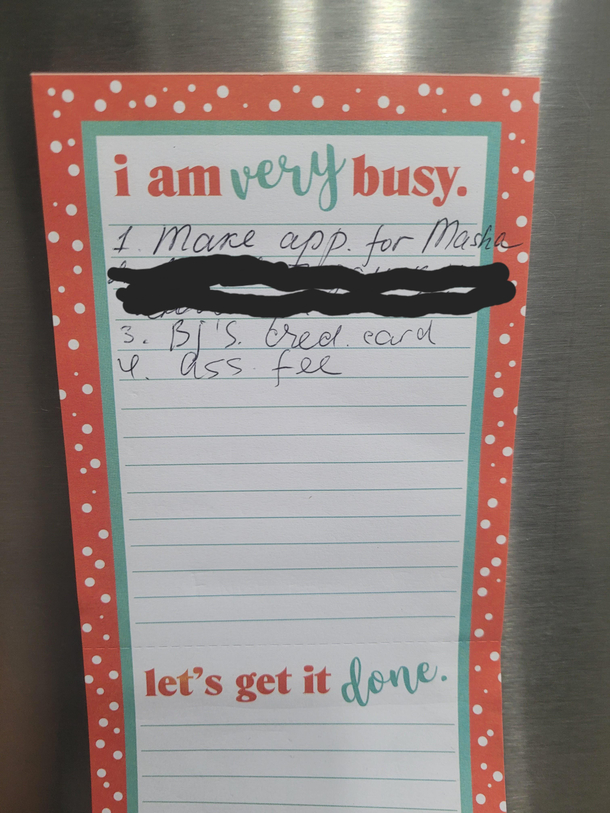 i am very busy.
1. Make app. for Masha
3. Bj's. cred. card
4. ass. fee
let's get it done.